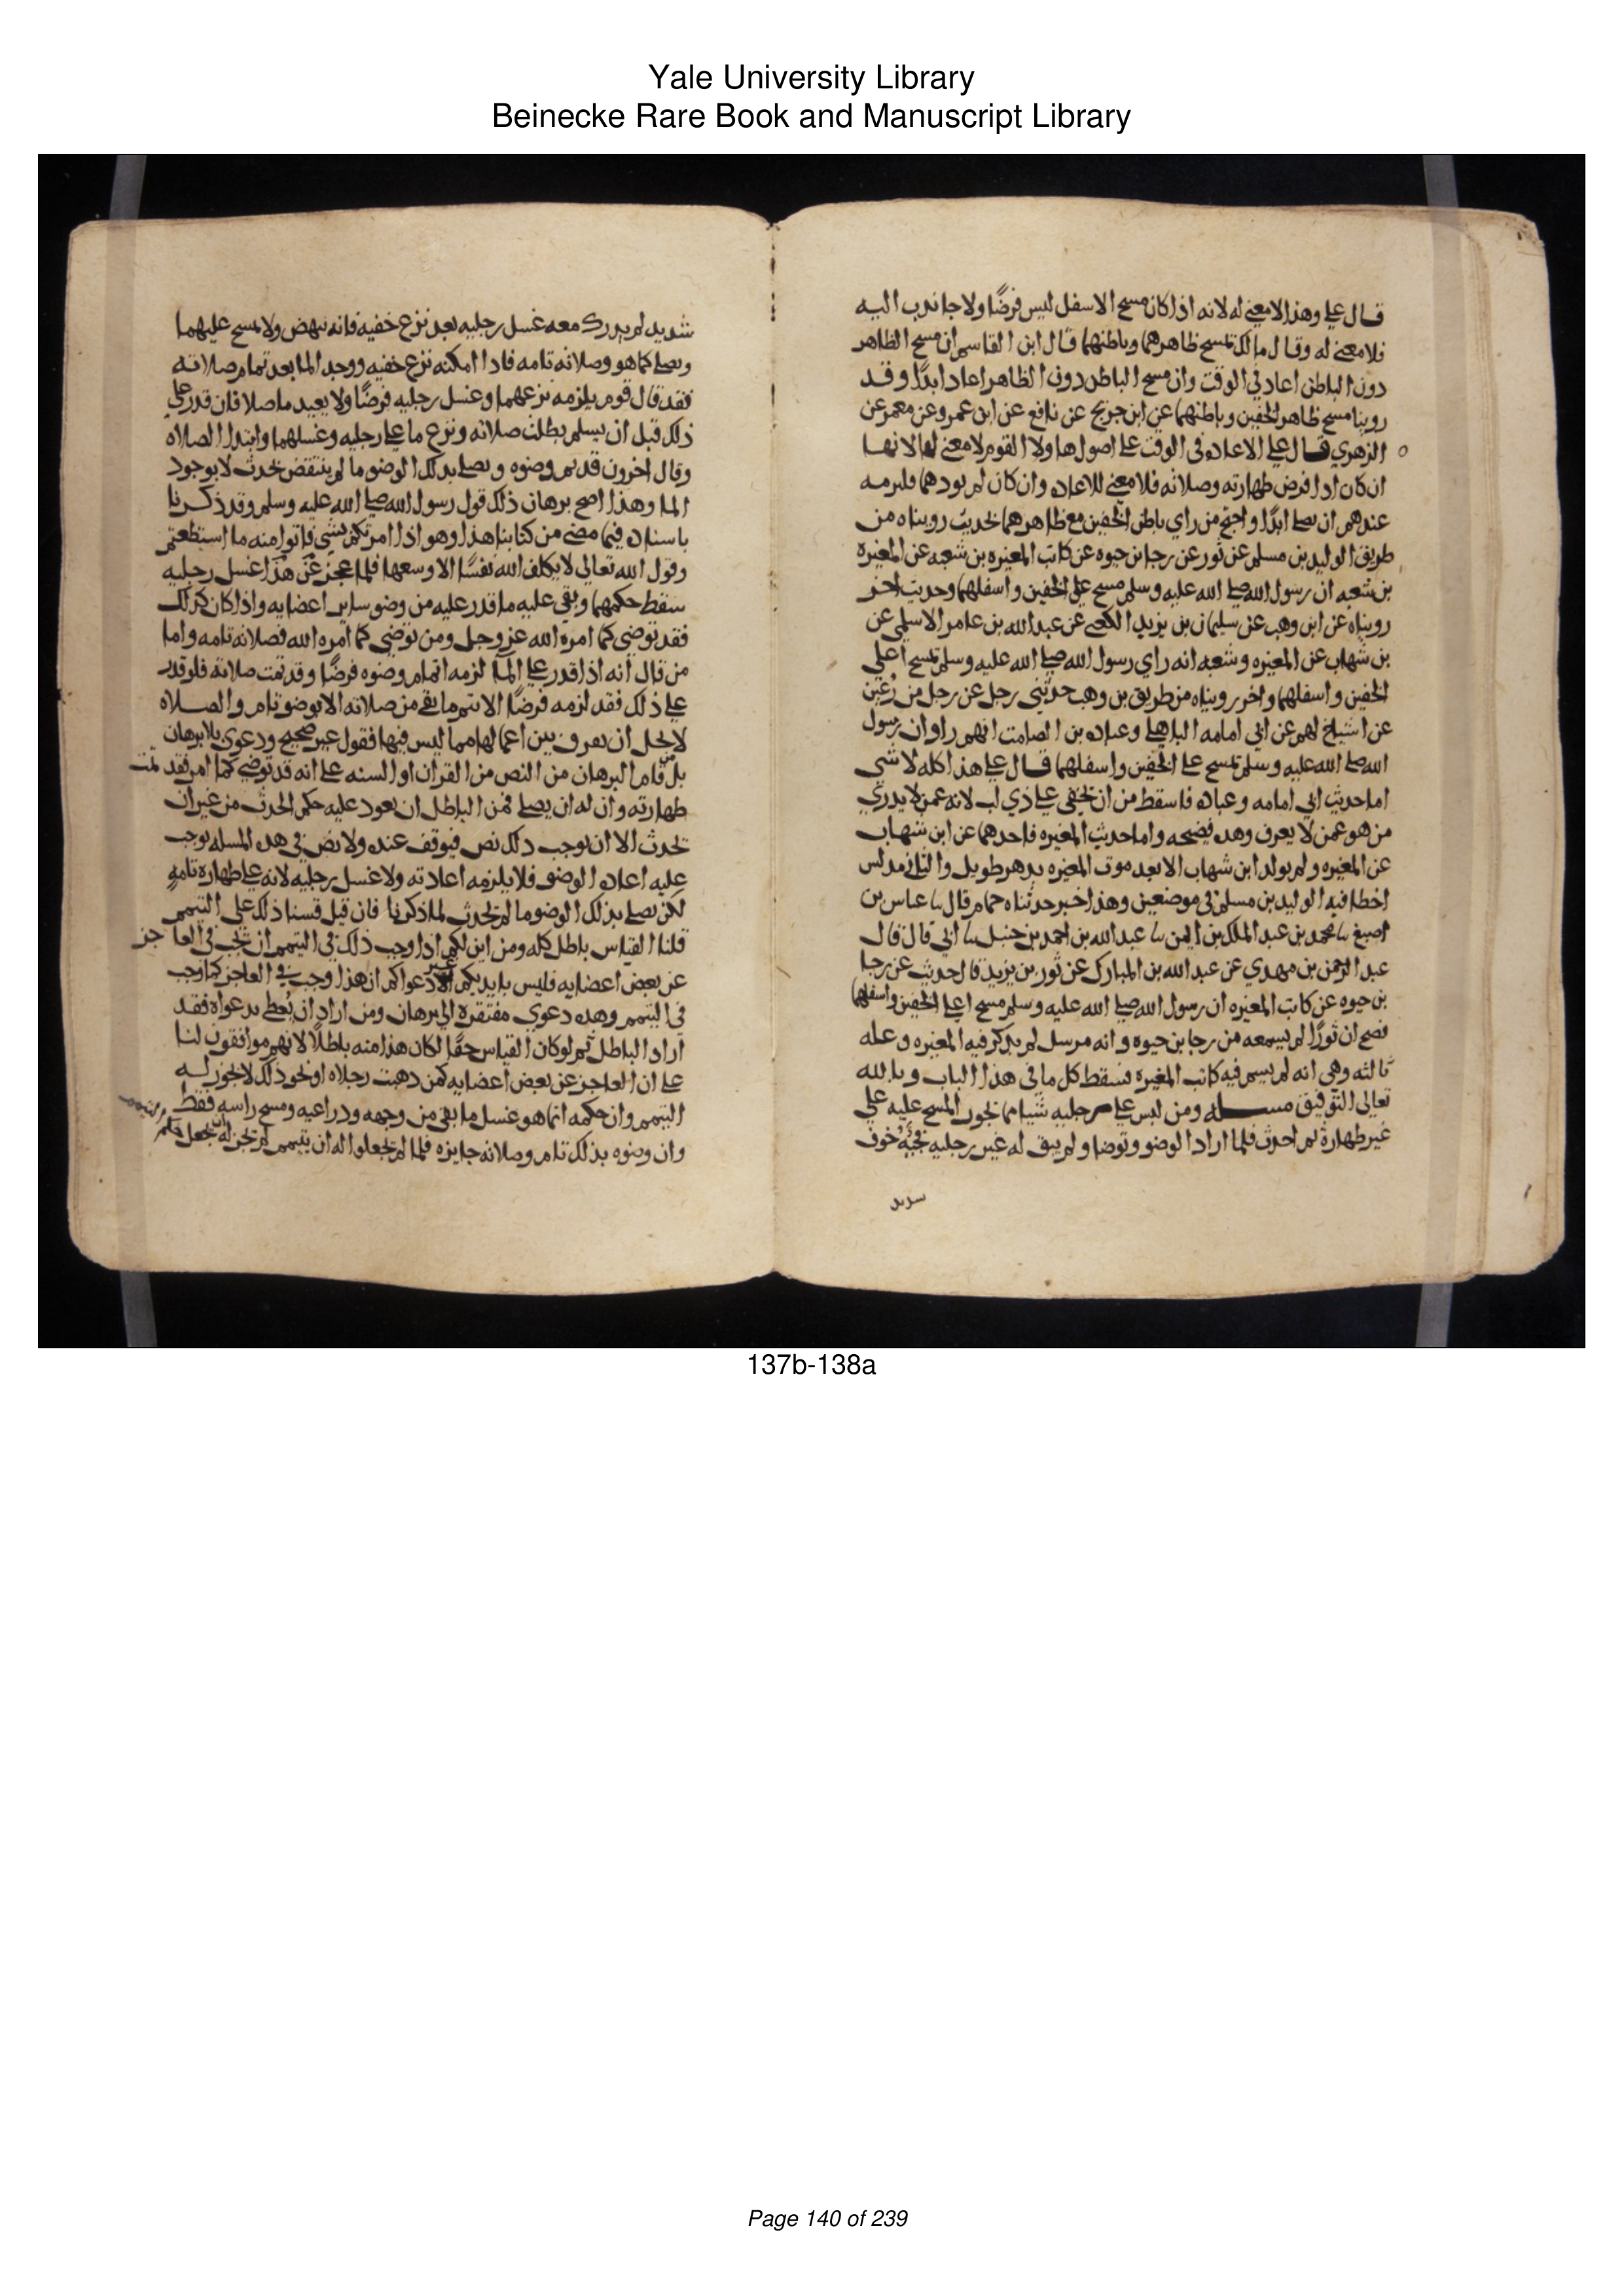 Yale University Library
Beinecke Rare Book and Manuscript Library
قال علي وهذا لا معنى له لانه اذا كان مسح الاسفل ليس فرضًا ولا جا ندب اليه
فلا معنى له وقال مالك تمسح ظاهرهما وباطنهما قال ابن القاسم ان مسح الظاهر
دون الباطن اعاد في الوقت وان مسح الباطن دون الظاهر اعاد ابدًا وقد
روينا مسح ظاهر الخفين وباطنهما عن ابن جريج عن نافع عن ابن عمر وعن معمر عن
الزهري قال علي الاعاده في الوقت على اصول هاولا القوم لا معنى لها لانها
ان كان ادا فرض طهارته وصلاته فلا معنى للاعاده وان كان لم يودهما فلزمه
عندهم ان يصلي ابدًا واحتج من راي باطن الخفين مع ظاهرهما بحديث رويناه من
طريق الوليد بن مسلم عن ثور عن رجا بن حيوه عن كاتب المغيره بن شعبه عن المغيرة
بن شعبه ان رسول الله صلى الله عليه وسلم مسح على الخفين واسفلهما وحديث اخر
رويناه عن ابن وهب عن سليمان بن يزيد الكعبي عن عبد الله بن عامر الاسلمي عن
بن شهاب عن المغيره وشعبه انه راي رسول الله صلى الله عليه وسلم تمسح اعلى
الخفين واسفلهما واخر رويناه من طريق بن وهب حدثني رجل عن رجل من رُعَين
عن اشياخ لهم عن ابي امامه الباهلي وعباده بن الصامت انهم راوا ان رسول
الله صلى الله عليه وسلم تمسح على الخفين واسفلهما قال علي هذا كله لا شي
اما حديث ابي امامه وعباده فاسقط من ان يخفى على ذي لب لانه عمن لا يدري
من هو عمن لا يعرف وهذه فضيحه واما حديث المغيره فاحدهما عن ابن شهاب
عن المغيره ولم يولد ابن شهاب الا بعد موت المغيره بدهر طويل والثاني مدلس
اخطا فيه الوليد بن مسلم في موضعين وهذا خبر حدثناه حمام قال نا عباس بن
اصبغ نا محمد بن عبد الملك بن ايمن نا عبد الله بن احمد بن حنبل نا ابي قال قال
عبد الرحمن بن مهدي عن عبد الله بن المبارك عن ثور بن يزيد قال حديث عن رجا
بن حيوه عن كاتب المغيره ان رسول الله صلى الله عليه وسلم مسح اعلى الخفين واسفلهما
فصح ان ثورًا لم يسمعه من رجا بن حيوه وانه مرسل لم يذكر فيه المغيره وعله
ثالثه وهي انه لم يسم فيه كاتب المغيرة فسقط كل ما في هذا الباب وبالله
تعالى التوفيق مسله ومن لبس على رجليه شيا مما يجوز المسح عليه على
غير طهارة ثم احدث فلما اراد الوضو وتوضا ولم يبق له غير رجليه فجيه خوف
شديد
شديد لم يدرك معه غسل رجليه بعد نزع خفيه فانه ينهض ولا يمسح عليهما
ويصلي كما هو وصلاته تامه فاذا امكنه نزع خفيه ووجد الما بعد تمام صلاته
فقد قال قوم يلزمه نزعهما وغسل رجليه فرضًا ولا يعيد ما صلا فان قدر على
ذلك قبل ان يسلم بطلت صلاته ونزع ما على رجليه وغسلهما وابتدا الصلاه
وقال اخرون قد تم وضوه ويصلي بذلك الوضو ما لم ينتقض بحدث لا بوجود
الما وهذا اصح برهان ذلك قول رسول الله صلى الله عليه وسلم وقد ذكرنا
باسناده فيما مضى من كتابنا هذا وهو اذا امرتكم بشي فاتوا منه ما استطعتم
وقول الله تعالى لا يكلف الله نفسًا الا وسعها فلما عجز عن هذا غسل رجليه
سقط حكمهما وبقي عليه ما قدر عليه من وضو ساير اعضايه واذا كان كذلك
فقد توضي كما امره الله عز وجل ومن توضي كما امره الله فصلاته تامه واما
من قال انه اذا قدر على الما لزمه اتمام وضوه فرضًا وقد تمت صلاته فلو قدر
على ذلك فقد لزمه فرضًا الا يتم ما بقي من صلاته الا بوضو تام والصلاه
لا يحل ان يفرق بين اعمالها مما ليس فيها فقول غير صحيح ودعوى بلا برهان
بل قام البرهان من النص من القران او السنه على انه قد توضى كما امر فقد تمت
طهارته وان له ان يصلي فمن الباطل ان يعود عليه حكم الحدث من غير ان
يحدث الا ان يوجب ذلك نص فيوقف عنده ولا نص في هذه المسله يوجب
عليه اعاده الوضو فلا يلزمه اعادته ولا غسل رجليه لانه على طهارة تامه
لكن يصلي بذلك الوضو ما لم يحدث لما ذكرنا فان قيل قسنا ذلك على التيمم
قلنا القياس باطل كله ومن اين لكم اذا وجب ذلك في التيمم ان يجب في العاجز
عن بعض اعضايه فليس بايديكم غير دعواكم ان هذا وجب في العاجز كما وجب
في التيمم وهذه دعوى مفتقرة الى برهان ومن اراد ان يُعطى بدعواه فقد
اراد الباطل ثم لو كان القياس حقًا لكان هذا منه باطلًا لانهم موافقون لنا
على ان العاجز عن بعض اعضايه كمن ذهبت رجلاه او نحو ذلك لا يجوز له
التيمم وان حكمه انما هو غسل ما بقي من وجهه وذراعيه ومسح راسه فقط
وان وضوه بذلك تام وصلاته جايزه فلما لم يجعلوا له ان يتيمم لم يجز ان يجعل حكم التيمم
137b-138a
Page 140 of 239